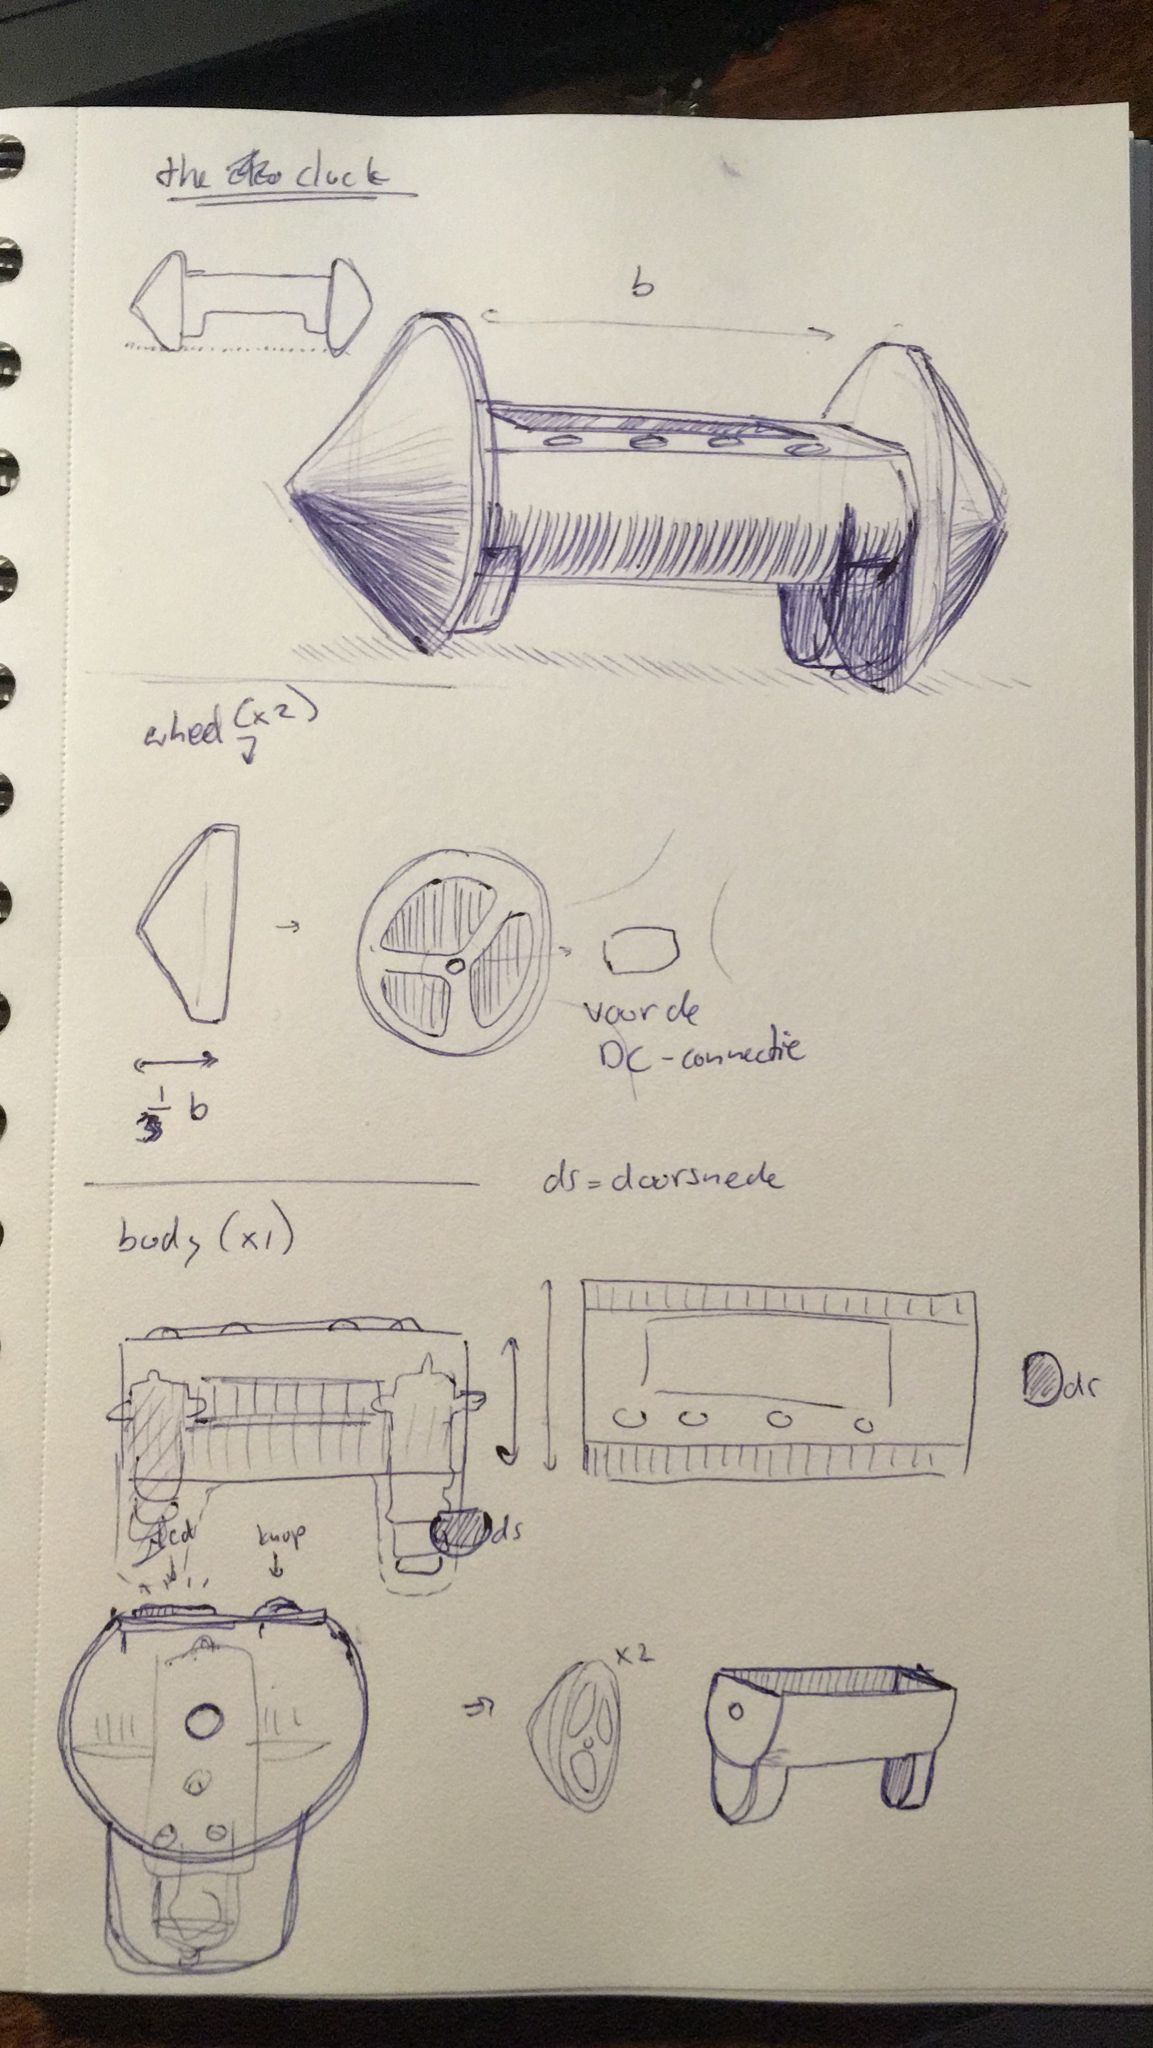 the clock
b
wheel (x2)
voor de
DC-connectie
1/3 b
ds = doorsnede
body (x1)
ds
ds
led
knop
x2